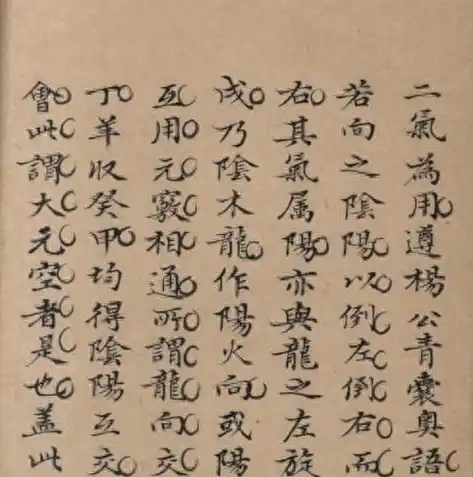 二氣為用遵楊公青囊奧語
若向之陰陽以倒左倒右而
右其氣属陽亦與龍之左旋
戌乃陰木龍作陽火向或陽
互用元竅相通所謂龍向交
丁羊収癸甲均得陰陽互交
會此謂大元空者是也盖此